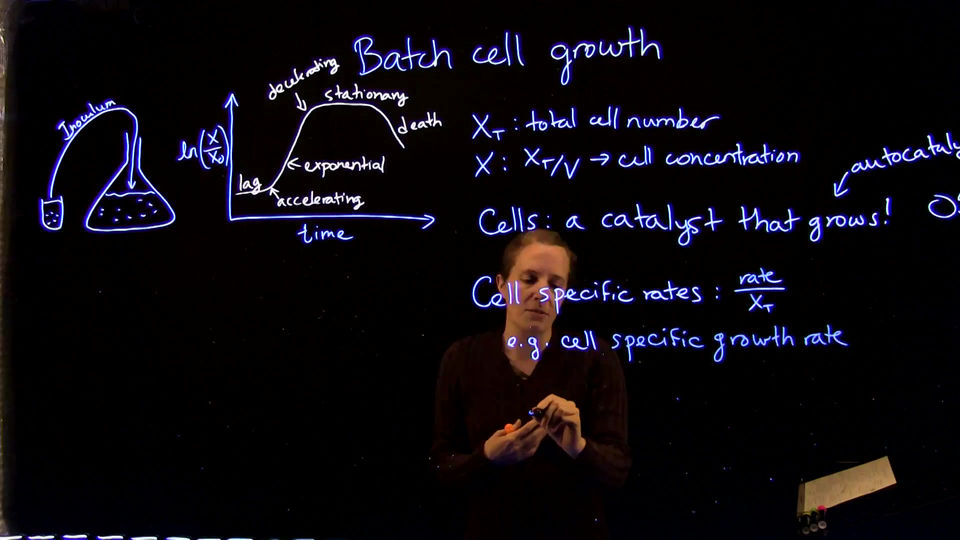 Batch cell growth
Inoculum
ln(X/X₀)
lag
accelerating
exponential
decelerating
stationary
death
time
X_T : total cell number
X : X_T/V → cell concentration
Cells: a catalyst that grows!
Cell specific rates : rate/X_T
e.g. cell specific growth rate